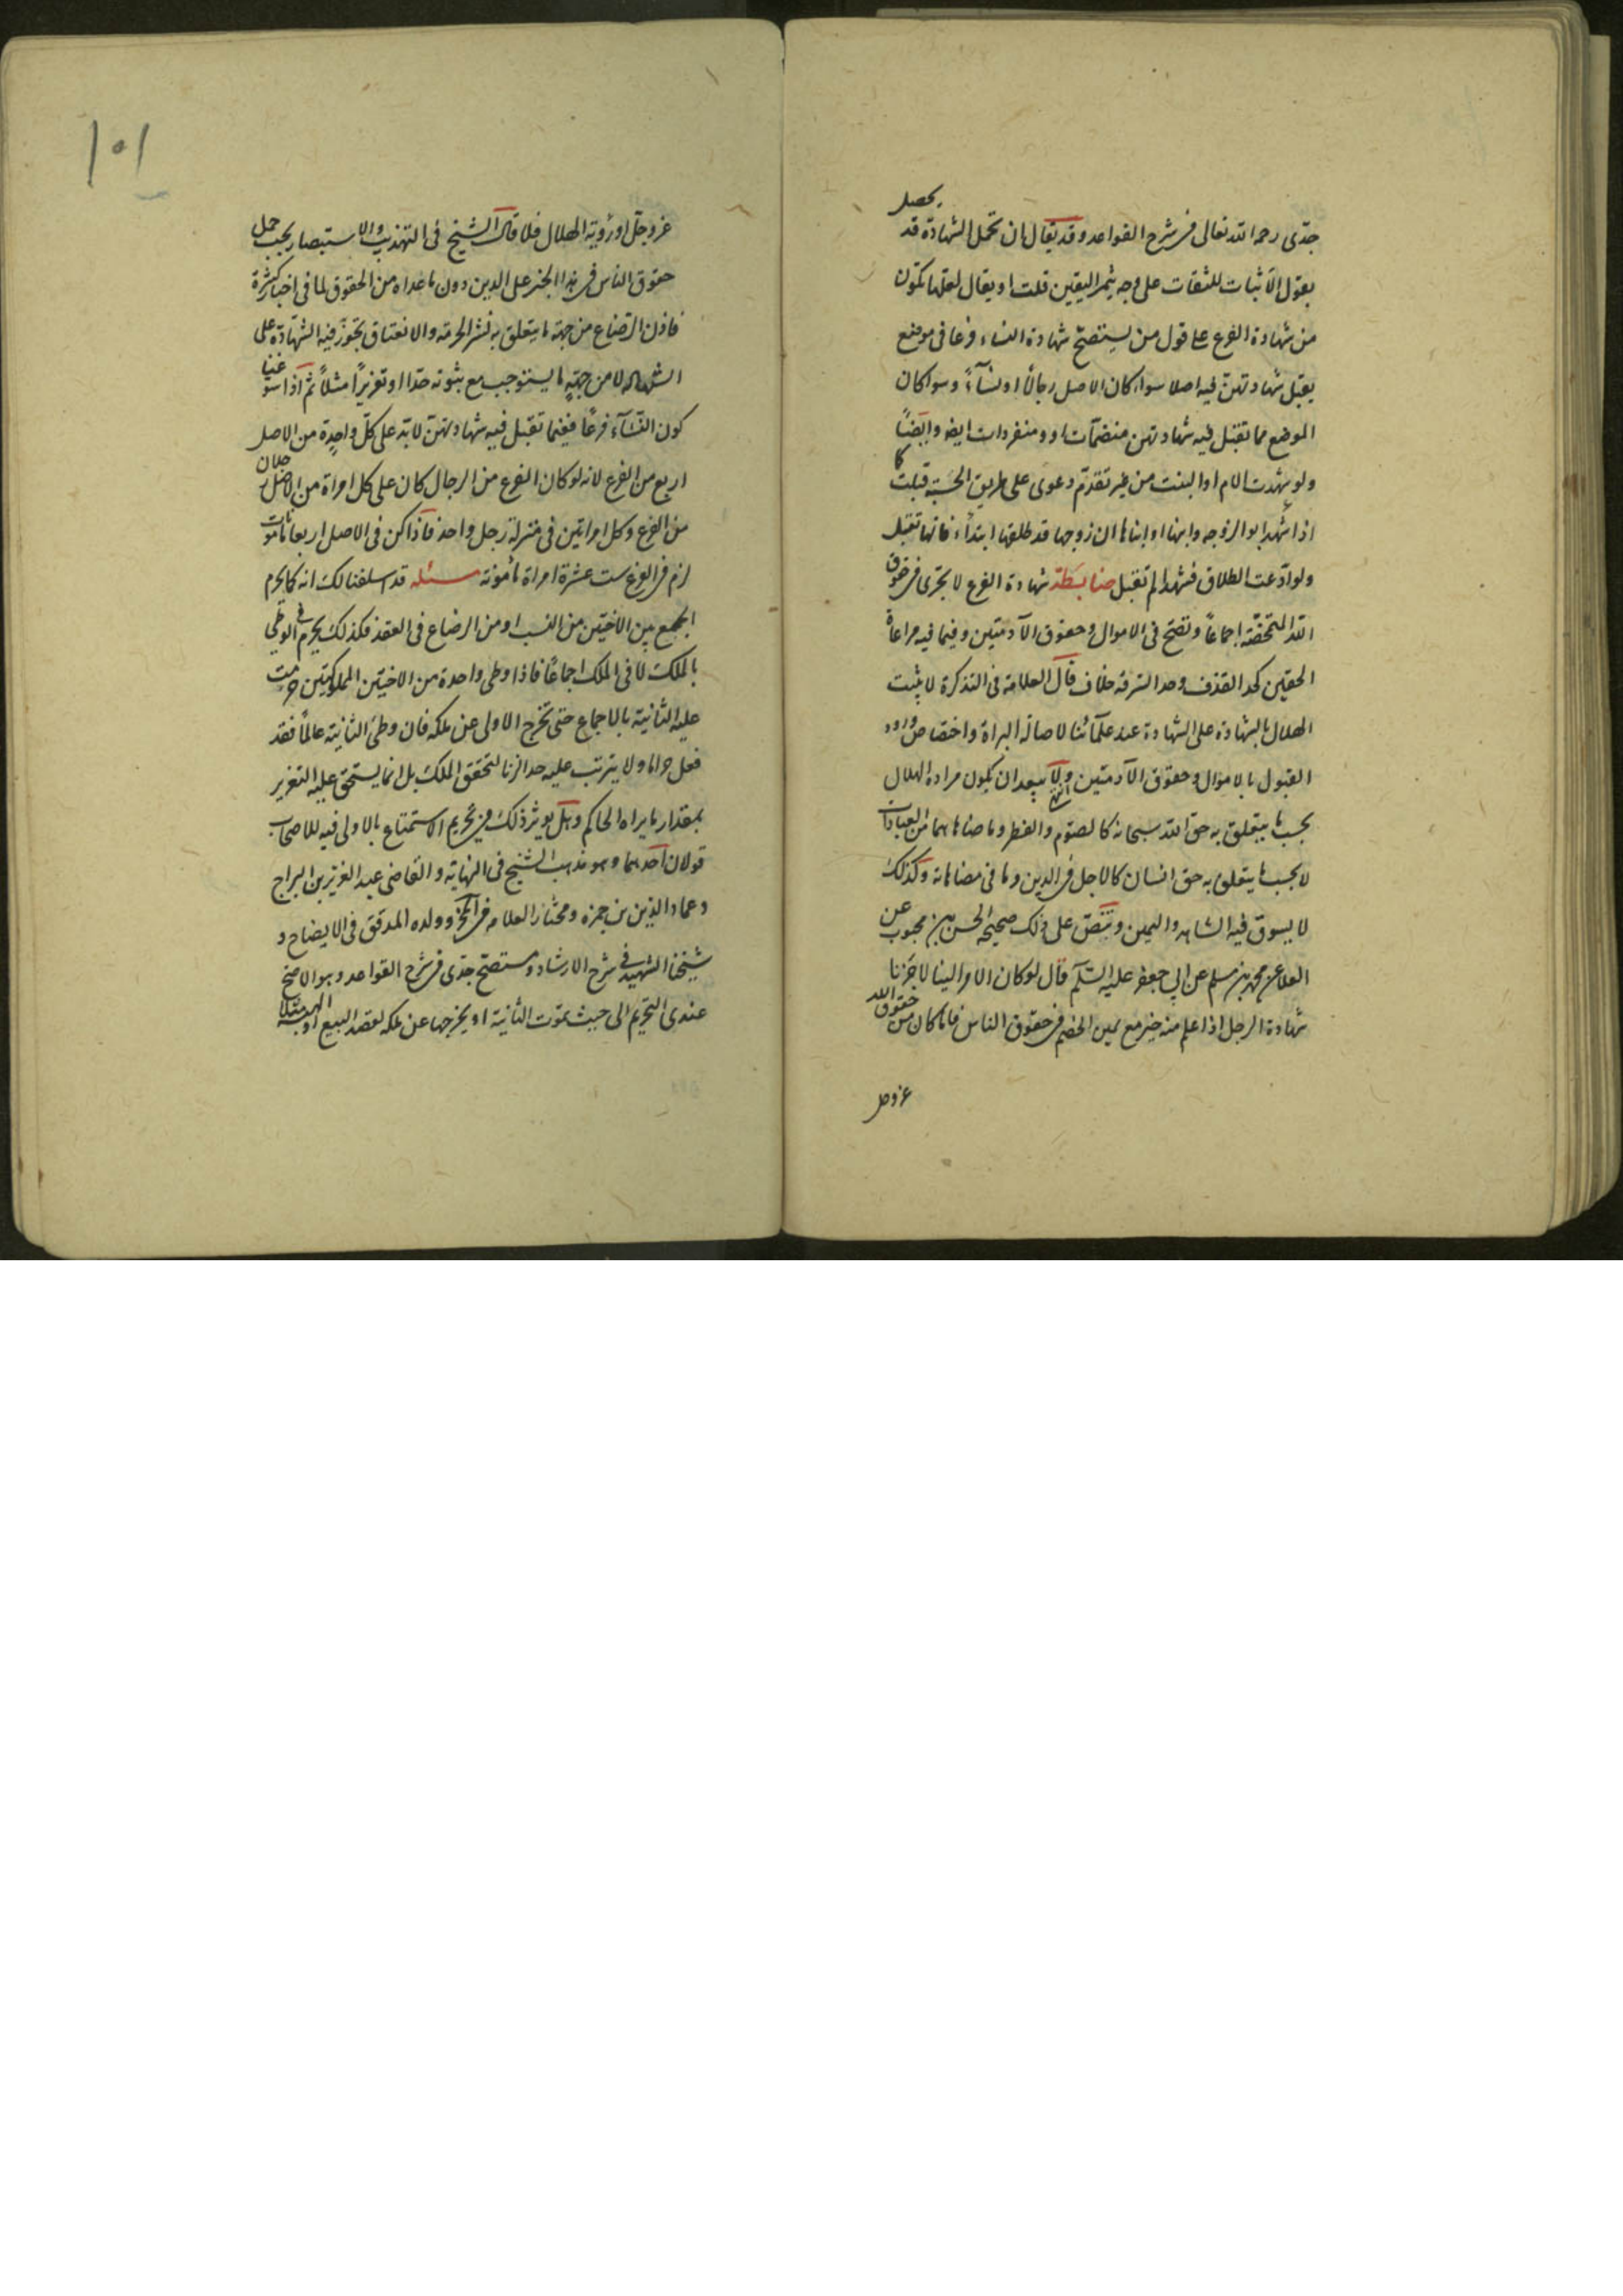 جدّى رحمه الله تعالى فى شرح القواعد وقد يقال ان تحمل الشهادة قد يحصل
بقول الاثبات للثقات على وجه يثمر اليقين قلت او يقال لعلها تكون
من شهادة الفرع على قول من يستصحّ شهادة النساء فرعا فى موضع
يقبل شهادتهنّ فيه اصلا سواء كان الاصل رجالاً او نسآءً وسواء كان
الموضع مما تقبل فيه شهادتهن منضمّات او ومنفردات ايضه وايضًا
ولو شهدت الام او البنت من غير تقدّم دعوى على طريق الحسبة قبلت كما
اذا شهد ابو الزوجه وابنها او ابناها ان زوجها قد طلقها ابتداء فانها تقبل
ولو ادّعت الطلاق فشهدا لم تقبل ضابطة شهادة الفرع لا يجزى فى حقوق
الله المتحضّة اجماعاً وتصحّ فى الاموال وحقوق الآدميّين وفيما فيه مراعاة
الحقين كحد القذف وحد السرقه خلاف قال العلامه فى التذكرة لا يثبت
الهلال بالشهادة على الشهادة عند علمآئنا لاصالة البراة واختصاص ورود
القبول بالاموال وحقوق الآدميّين ولا يبعد ان يكون مراده الهلال
بحسب ما يتعلق به حق الله سبحانه كالصوم والفطر وما ضاهاهما من العبادات
لا بحسب ما يتعلق به حق انسان كالاجل فى الدين وما فى مضاهاته وكذلك
لا يسوق فيه الشاهد واليمين وينصّ على ذلك صحيحه الحسن بن محبوب عن
العلا عن محمد بن مسلم عن ابى جعفر عليه السّلم قال لو كان الامر الينا لاجزنا
شهادة الرجل اذا علم منه خير مع يمين الخصم فى حقوق الناس فاما كان من حقوق الله
عز وجل
١٥١
عز وجلّ او رؤية الهلال فلا قال الشيخ فى التهذيب والاستبصار يجب حمل
حقوق الناس فى هذا الخبر على الدين دون ما عداه من الحقوق لما فى اخبار كثيرة
فاذن الرضاع من جهة ما يتعلق به نشر الحرمة والانعتاق تجوز فيه الشهادة على
الشهادة لا من جهةٍ ما يستوجب مع ثبوته حدّا او تعزيراً مثلاً ثم اذا سوّغنا
كون النسآء فرعًا فيما تقبل فيه شهادتهنّ لابدّ على كلّ واحدة من الاصل
اربع من الفرع لانه لو كان الفرع من الرجال كان على كل امراة من الاصل رجلان
من الفرع وكل امراتين فى منزلة رجل واحد فاذا كن فى الاصل اربعا مامونات
لزم فى الفرع ست عشرة امراة مأمونة مسئله قد اسلفنا لك انه كما يحرم
الجمع بين الاختين من النسب او من الرضاع فى العقد فكذلك يحرم فى الوطى
بالملك لا فى الملك اجماعًا فاذا وطى واحدة من الاختين المملوكتين حرمت
عليه الثانية بالاجماع حتى تخرج الاولى عن ملكه فان وطئ الثانية عالماً فقد
فعل حراما ولا يترتب عليه حد الزنا لتحقق الملك بل انما يستحق عليه التعزير
بمقدار ما يراه الحاكم وهل يوثر ذلك فى تحريم الاستمتاع بالاولى فيه للاصحاب
قولان احدهما وهو مذهب الشيخ فى النهاية والقاضى عبد العزيز بن البراج
وعماد الدين بن حمزه ومختار العلامه فى التحرير وولده المدقق فى الايضاح و
شيخنا الشهيد فى شرح الارشاد ومستصحّ جدّى فى شرح القواعد وهو الاصح
عندى التحريم الى حيث تموت الثانية او يخرجها عن ملكه لقصد البيع او الهبة مثلا